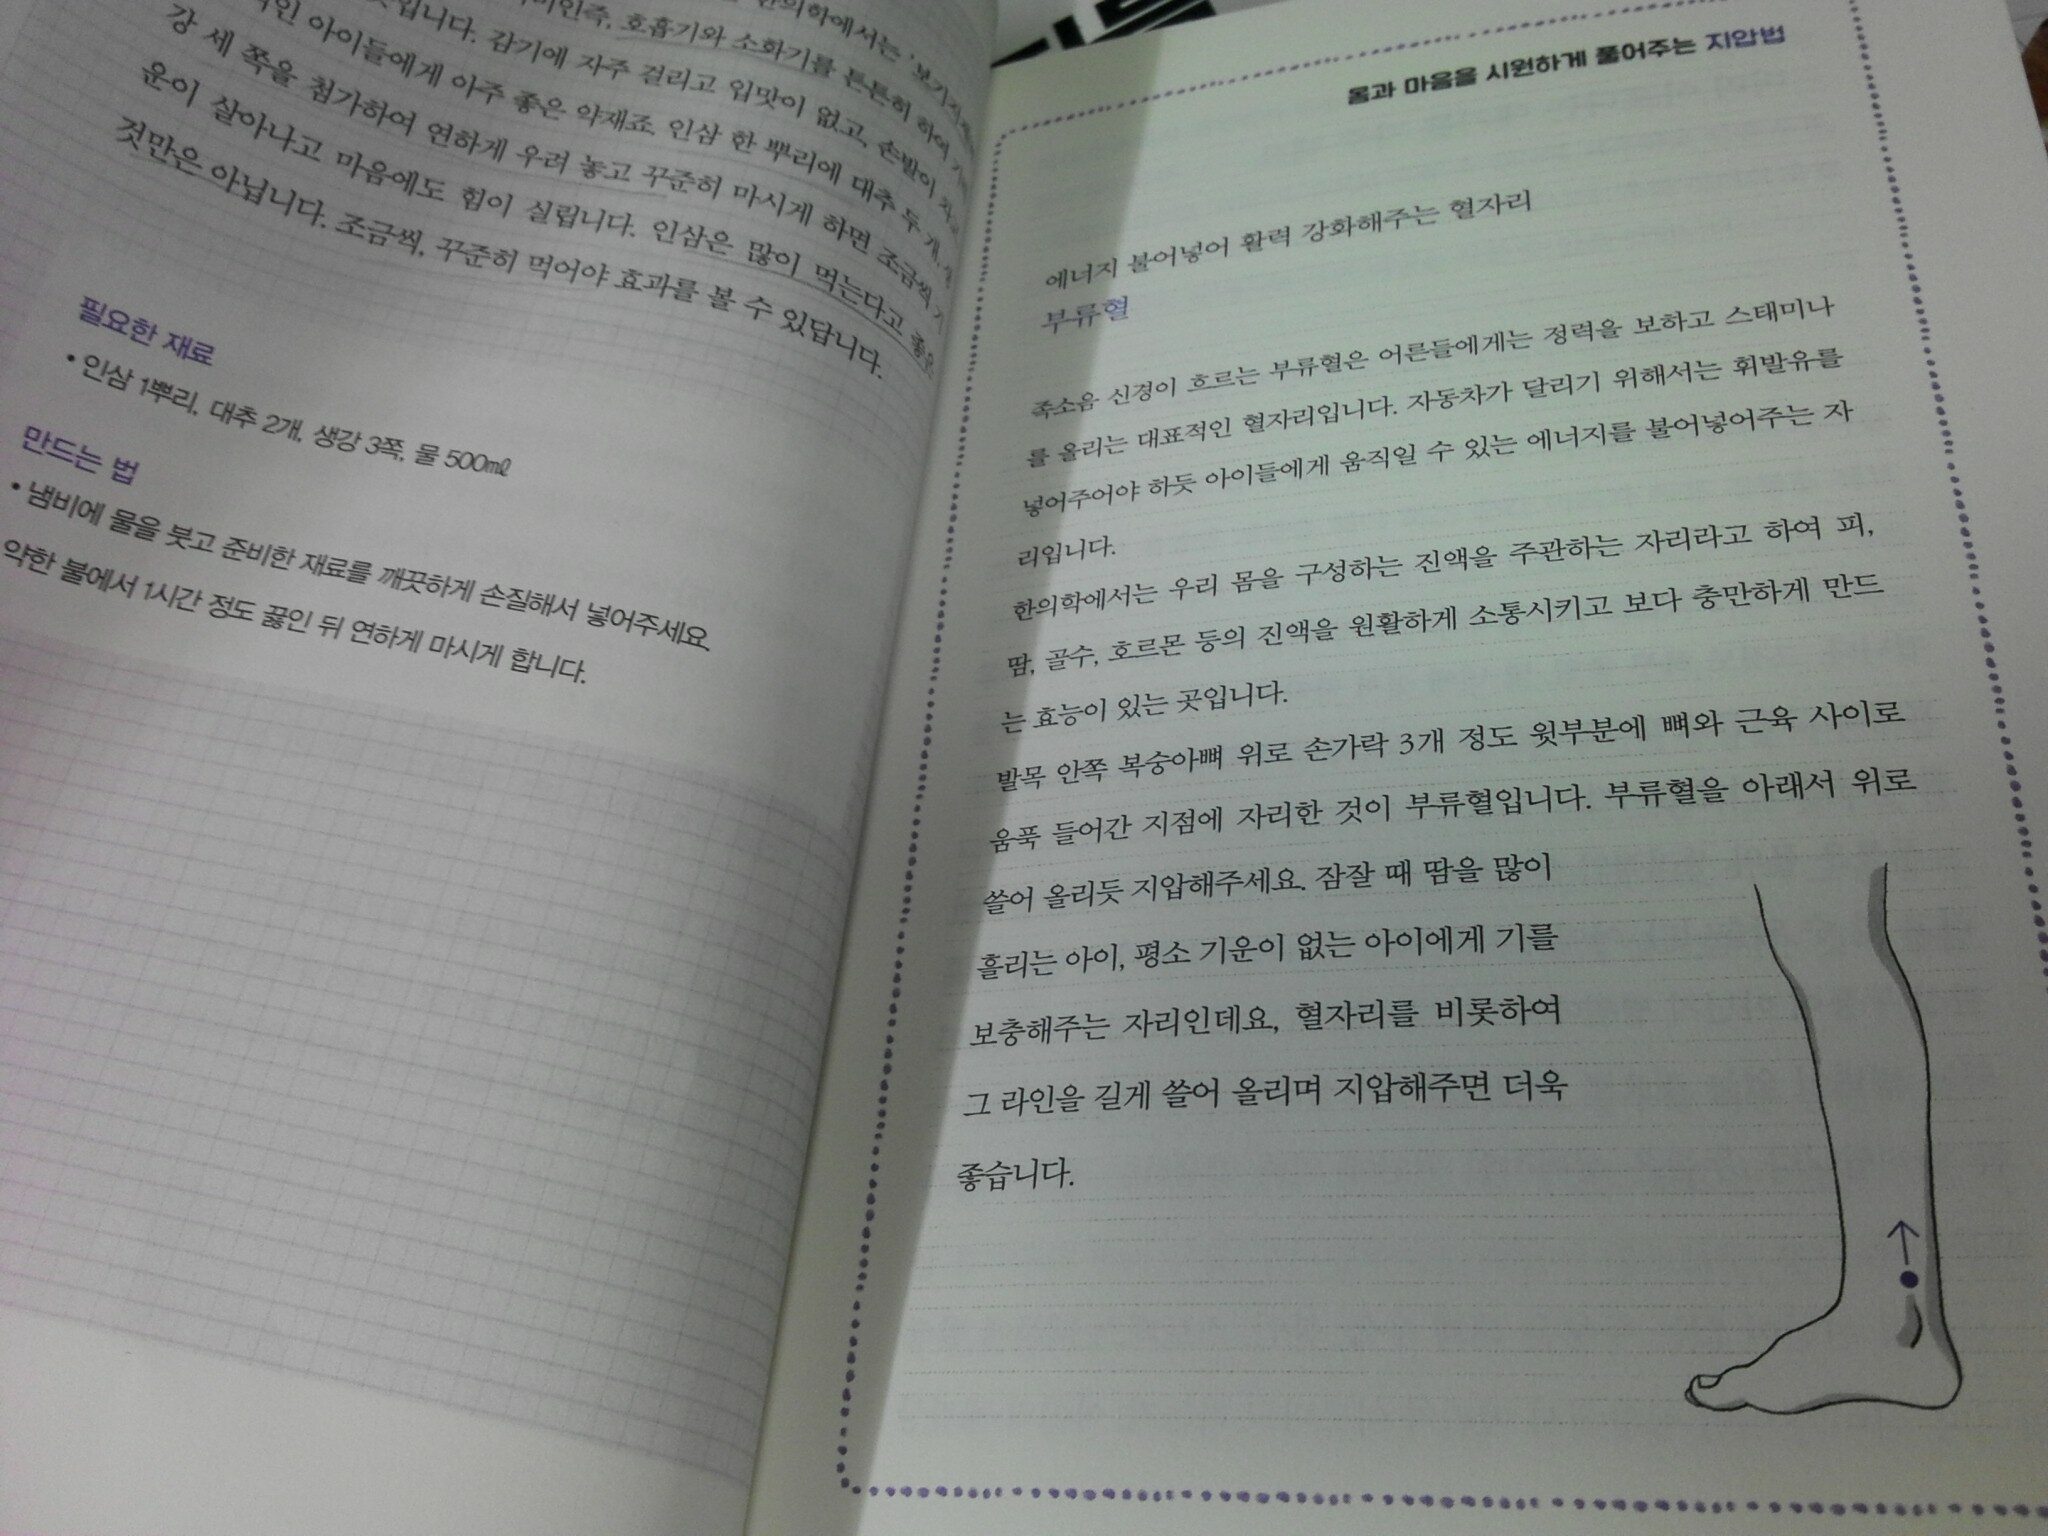 한의학에서는 '보기
호흡기와 소화기를 튼튼히 하여
것입니다. 감기에 자주 걸리고 입맛이 없고, 손발이
인 아이들에게 아주 좋은 약재죠. 인삼 한 뿌리에 대추 두 개, 생
강 세 쪽을 첨가하여 연하게 우려 놓고 꾸준히 마시게 하면 조금씩 기
운이 살아나고 마음에도 힘이 실립니다. 인삼은 많이 먹는다고 좋은
것만은 아닙니다. 조금씩, 꾸준히 먹어야 효과를 볼 수 있답니다.
필요한 재료
• 인삼 1뿌리, 대추 2개, 생강 3쪽, 물 500㎖
만드는 법
• 냄비에 물을 붓고 준비한 재료를 깨끗하게 손질해서 넣어주세요.
약한 불에서 1시간 정도 끓인 뒤 연하게 마시게 합니다.
몸과 마음을 시원하게 풀어주는 지압법
에너지 불어넣어 활력 강화해주는 혈자리
부류혈
족소음 신경이 흐르는 부류혈은 어른들에게는 정력을 보하고 스태미나
를 올리는 대표적인 혈자리입니다. 자동차가 달리기 위해서는 휘발유를
넣어주어야 하듯 아이들에게 움직일 수 있는 에너지를 불어넣어주는 자
리입니다.
한의학에서는 우리 몸을 구성하는 진액을 주관하는 자리라고 하여 피,
땀, 골수, 호르몬 등의 진액을 원활하게 소통시키고 보다 충만하게 만드
는 효능이 있는 곳입니다.
발목 안쪽 복숭아뼈 위로 손가락 3개 정도 윗부분에 뼈와 근육 사이로
움푹 들어간 지점에 자리한 것이 부류혈입니다. 부류혈을 아래서 위로
쓸어 올리듯 지압해주세요. 잠잘 때 땀을 많이
흘리는 아이, 평소 기운이 없는 아이에게 기를
보충해주는 자리인데요, 혈자리를 비롯하여
그 라인을 길게 쓸어 올리며 지압해주면 더욱
좋습니다.